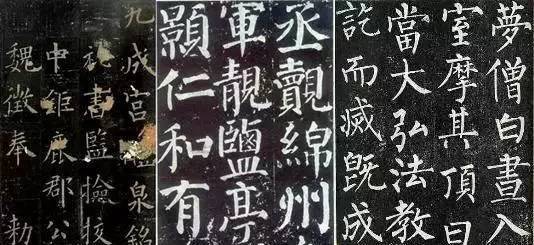 九成宫醴泉銘
秘書監檢校
中鉅鹿郡公
魏徵奉 勅
丞覿綿州
軍靚鹽亭
顯仁和有
夢僧白晝入
室摩其頂曰
當大弘法教
訖而滅既成